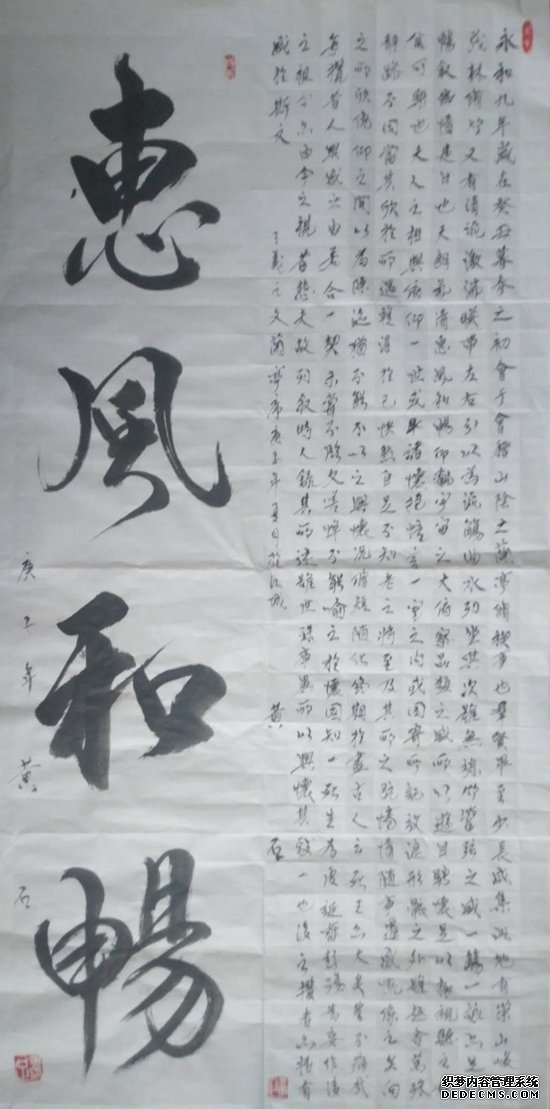 永和九年歲在癸丑暮春之初會于會稽山陰之蘭亭脩稧事也羣賢畢至少長咸集此地有崇山峻
茂林脩竹又有清流激湍暎帶左右引以為流觴曲水列坐其次雖無絲竹管弦之盛一觴一詠亦足
暢敘幽情是日也天朗氣清惠風和暢仰觀宇宙之大俯察品類之盛所以遊目騁懷足以極視聽之
信可樂也夫人之相與俯仰一世或取諸懷抱悟言一室之內或因寄所託放浪形骸之外雖趣舍萬殊
靜躁不同當其欣於所遇暫得於己快然自足不知老之將至及其所之既惓情隨事遷感慨係之矣向
之所欣俛仰之間以為陳迹猶不能不以之興懷況脩短隨化終期於盡古人云死生亦大矣豈不痛哉
每攬昔人興感之由若合一契未嘗不臨文嗟悼不能喻之於懷固知一死生為虛誕齊彭殤為妄作後
之視今亦由今之視昔悲夫故列敘時人錄其所述雖世殊事異所以興懷其致一也後之攬者亦將有
感於斯文
王羲之文蘭亭序庚子年夏日於江城 黃石
惠風和暢
庚子年 黃石
织梦内容管理系统
DEDECMS.COM